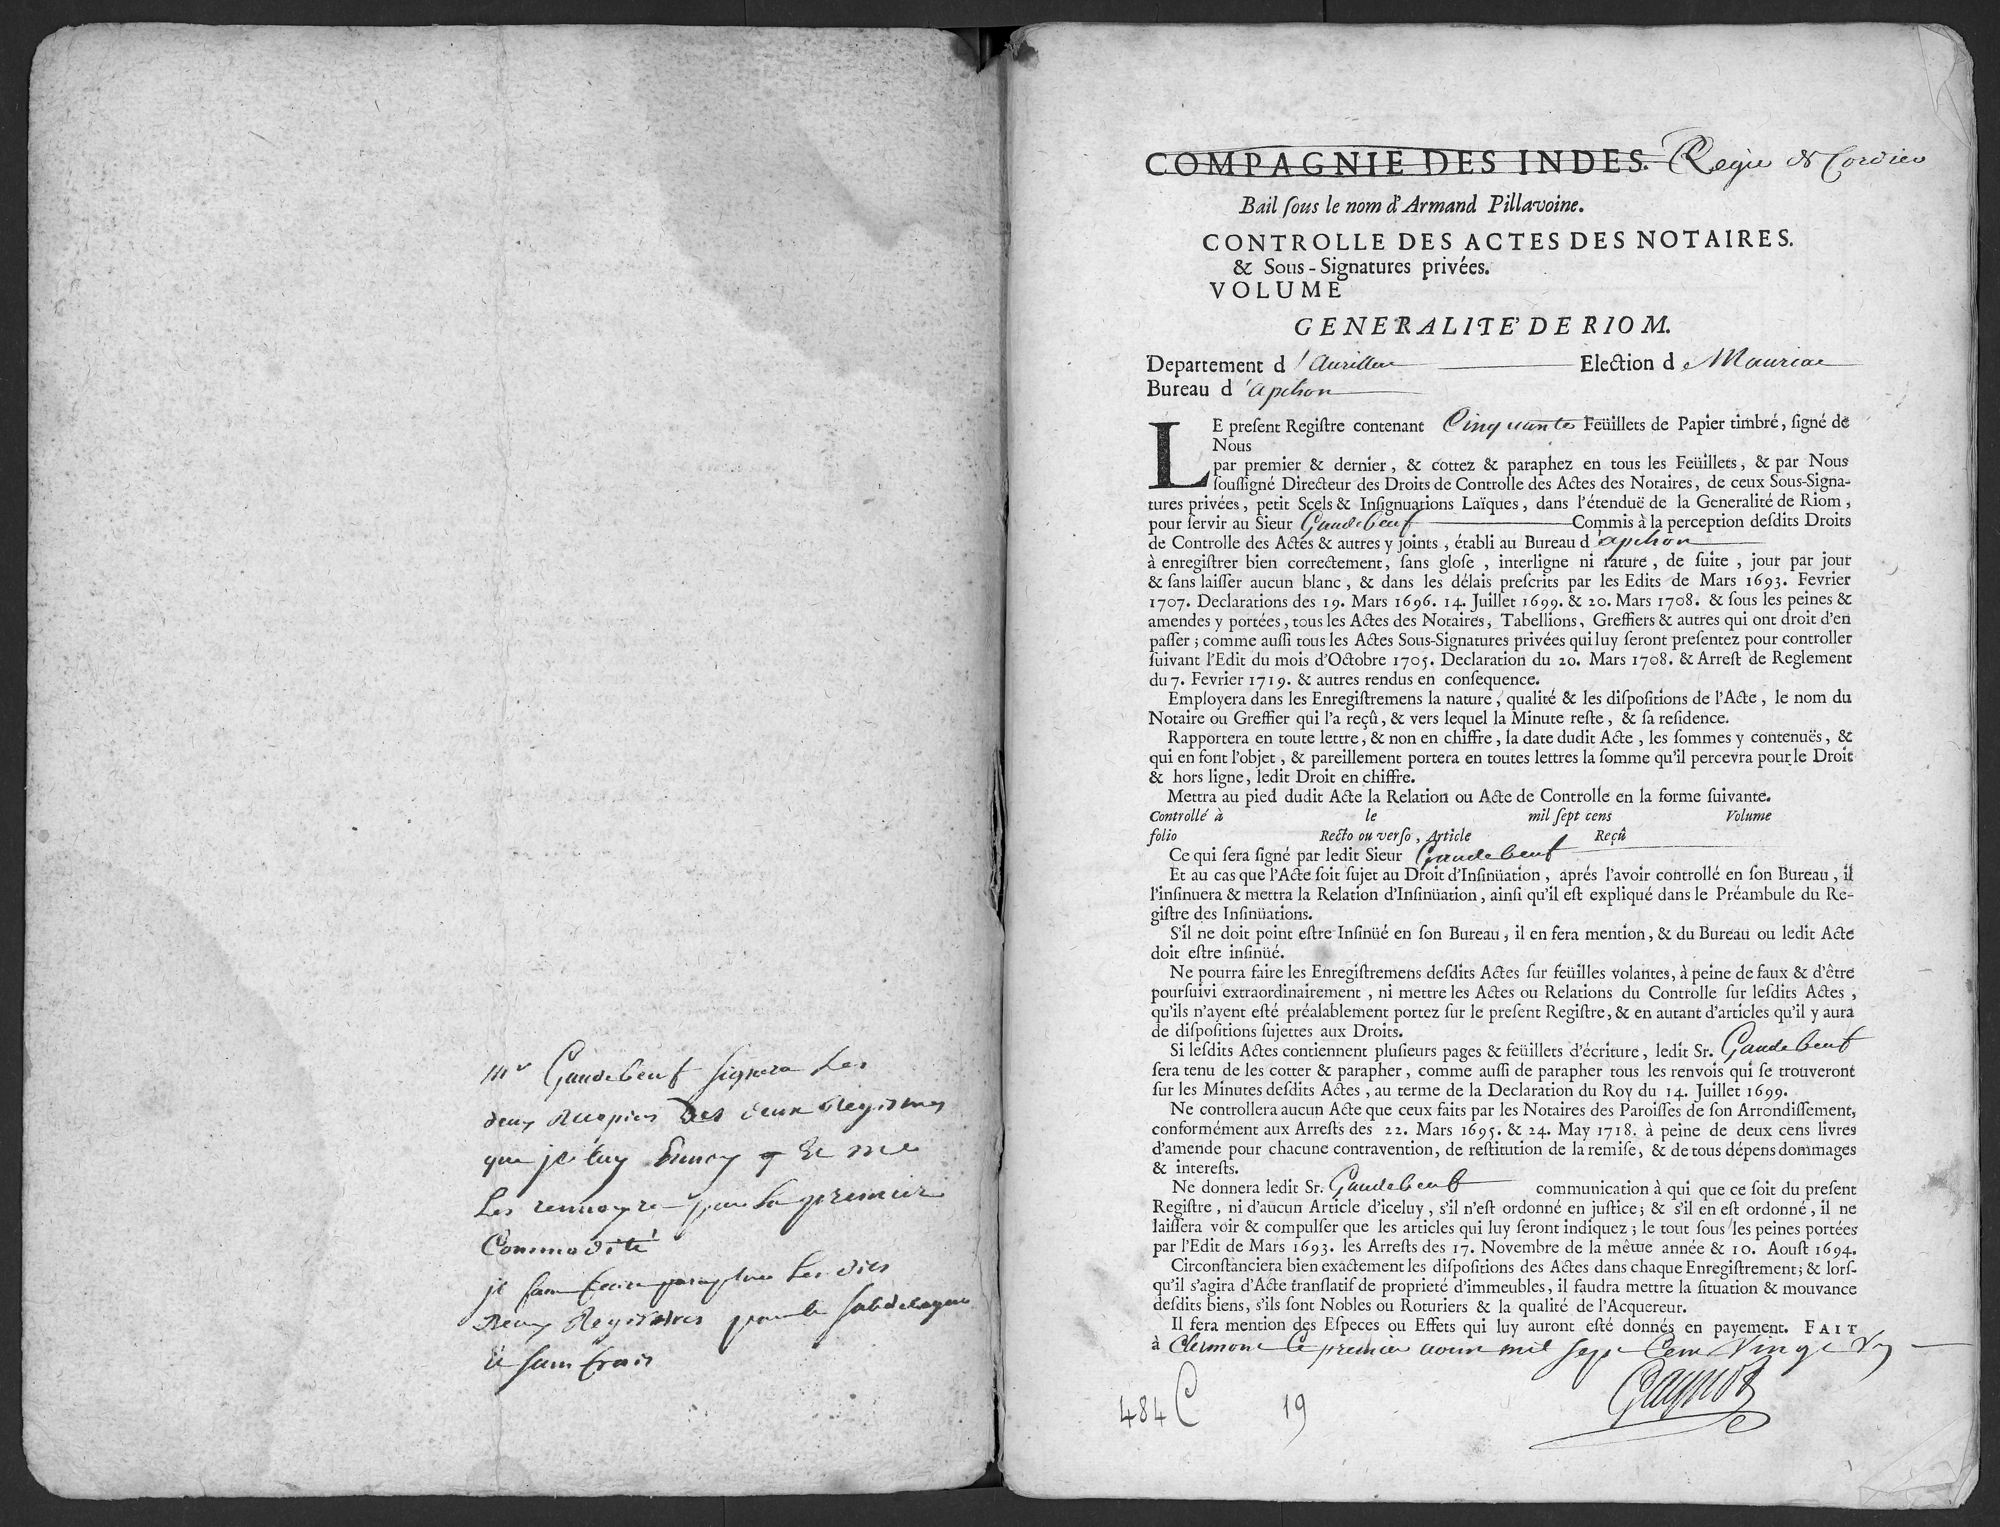 Mr Gaudebeuf signera Les
deux Recepices Des deux Registres
que je luy Envoy & Et me
Les renvoyra par La premiere
Commodité
je fais parapher Les dits
Deux Registres par le subdelegué
Et sans frais
COMPAGNIE DES INDES. Regie de Cordier
Bail ſous le nom d'Armand Pillavoine.
CONTROLLE DES ACTES DES NOTAIRES.
& Sous-Signatures privées.
VOLUME
GENERALITE' DE RIOM.
Departement d'Aurillac Election de Mauriac
Bureau d'apchon
LE preſent Regiſtre contenant Cinquante Feüillets de Papier timbré, ſigné de
Nous
par premier & dernier, & cottez & paraphez en tous les Feüillets, & par Nous
ſouſſigné Directeur des Droits de Controlle des Actes des Notaires, de ceux Sous-Signa-
tures privées, petit Scels & Inſignuations Laïques, dans l'étenduë de la Generalité de Riom,
pour ſervir au Sieur Gaudebeuf Commis à la perception deſdits Droits
de Controlle des Actes & autres y joints, établi au Bureau d'apchon
à enregiſtrer bien correctement, ſans gloſe, interligne ni rature, de ſuite, jour par jour
& ſans laiſſer aucun blanc, & dans les délais preſcrits par les Edits de Mars 1693. Fevrier
1707. Declarations des 19. Mars 1696. 14. Juillet 1699. & 20. Mars 1708. & ſous les peines &
amendes y portées, tous les Actes des Notaires, Tabellions, Greffiers & autres qui ont droit d'en
paſſer; comme auſſi tous les Actes Sous-Signatures privées qui luy ſeront preſentez pour controller
ſuivant l'Edit du mois d'Octobre 1705. Declaration du 20. Mars 1708. & Arreſt de Reglement
du 7. Fevrier 1719. & autres rendus en conſequence.
Employera dans les Enregiſtremens la nature, qualité & les diſpoſitions de l'Acte, le nom du
Notaire ou Greffier qui l'a reçû, & vers lequel la Minute reſte, & ſa reſidence.
Rapportera en toute lettre, & non en chiffre, la date dudit Acte, les ſommes y contenuës, &
qui en font l'objet, & pareillement portera en toutes lettres la ſomme qu'il percevra pour le Droit
& hors ligne, ledit Droit en chiffre.
Mettra au pied dudit Acte la Relation ou Acte de Controlle en la forme ſuivante.
Controllé à le mil ſept cens Volume
folio Recto ou verſo, Article Reçû
Ce qui ſera ſigné par ledit Sieur Gaudebeuf
Et au cas que l'Acte ſoit ſujet au Droit d'Inſinüation, aprés l'avoir controllé en ſon Bureau, il
l'inſinuera & mettra la Relation d'Inſinüation, ainſi qu'il eſt expliqué dans le Préambule du Re-
giſtre des Inſinüations.
S'il ne doit point eſtre Inſinüé en ſon Bureau, il en fera mention, & du Bureau ou ledit Acte
doit eſtre inſinüé.
Ne pourra faire les Enregiſtremens deſdits Actes ſur feüilles volantes, à peine de faux & d'être
pourſuivi extraordinairement, ni mettre les Actes ou Relations du Controlle ſur leſdits Actes,
qu'ils n'ayent eſté préalablement portez ſur le preſent Regiſtre, & en autant d'articles qu'il y aura
de diſpoſitions ſujettes aux Droits.
Si leſdits Actes contiennent pluſieurs pages & feüillets d'écriture, ledit Sr. Gaudebeuf
ſera tenu de les cotter & parapher, comme auſſi de parapher tous les renvois qui ſe trouveront
ſur les Minutes deſdits Actes, au terme de la Declaration du Roy du 14. Juillet 1699.
Ne controllera aucun Acte que ceux faits par les Notaires des Paroiſſes de ſon Arrondiſſement,
conformément aux Arreſts des 22. Mars 1695. & 24. May 1718. à peine de deux cens livres
d'amende pour chacune contravention, de reſtitution de la remiſe, & de tous dépens dommages
& intereſts.
Ne donnera ledit Sr. Gaudebeuf communication à qui que ce ſoit du preſent
Regiſtre, ni d'aucun Article d'iceluy, s'il n'eſt ordonné en juſtice; & s'il en eſt ordonné, il ne
laiſſera voir & compulſer que les articles qui luy ſeront indiquez; le tout ſous les peines portées
par l'Edit de Mars 1693. les Arreſts des 17. Novembre de la même année & 10. Aouſt 1694.
Circonſtanciera bien exactement les diſpoſitions des Actes dans chaque Enregiſtrement; & lorſ-
qu'il s'agira d'Acte tranſlatif de proprieté d'immeubles, il faudra mettre la ſituation & mouvance
deſdits biens, s'ils ſont Nobles ou Roturiers & la qualité de l'Acquereur.
Il fera mention des Eſpeces ou Effets qui luy auront eſté donnés en payement. FAIT
à Clermont Le premier aoust mil sept Cent Vingt Un
484 C 19